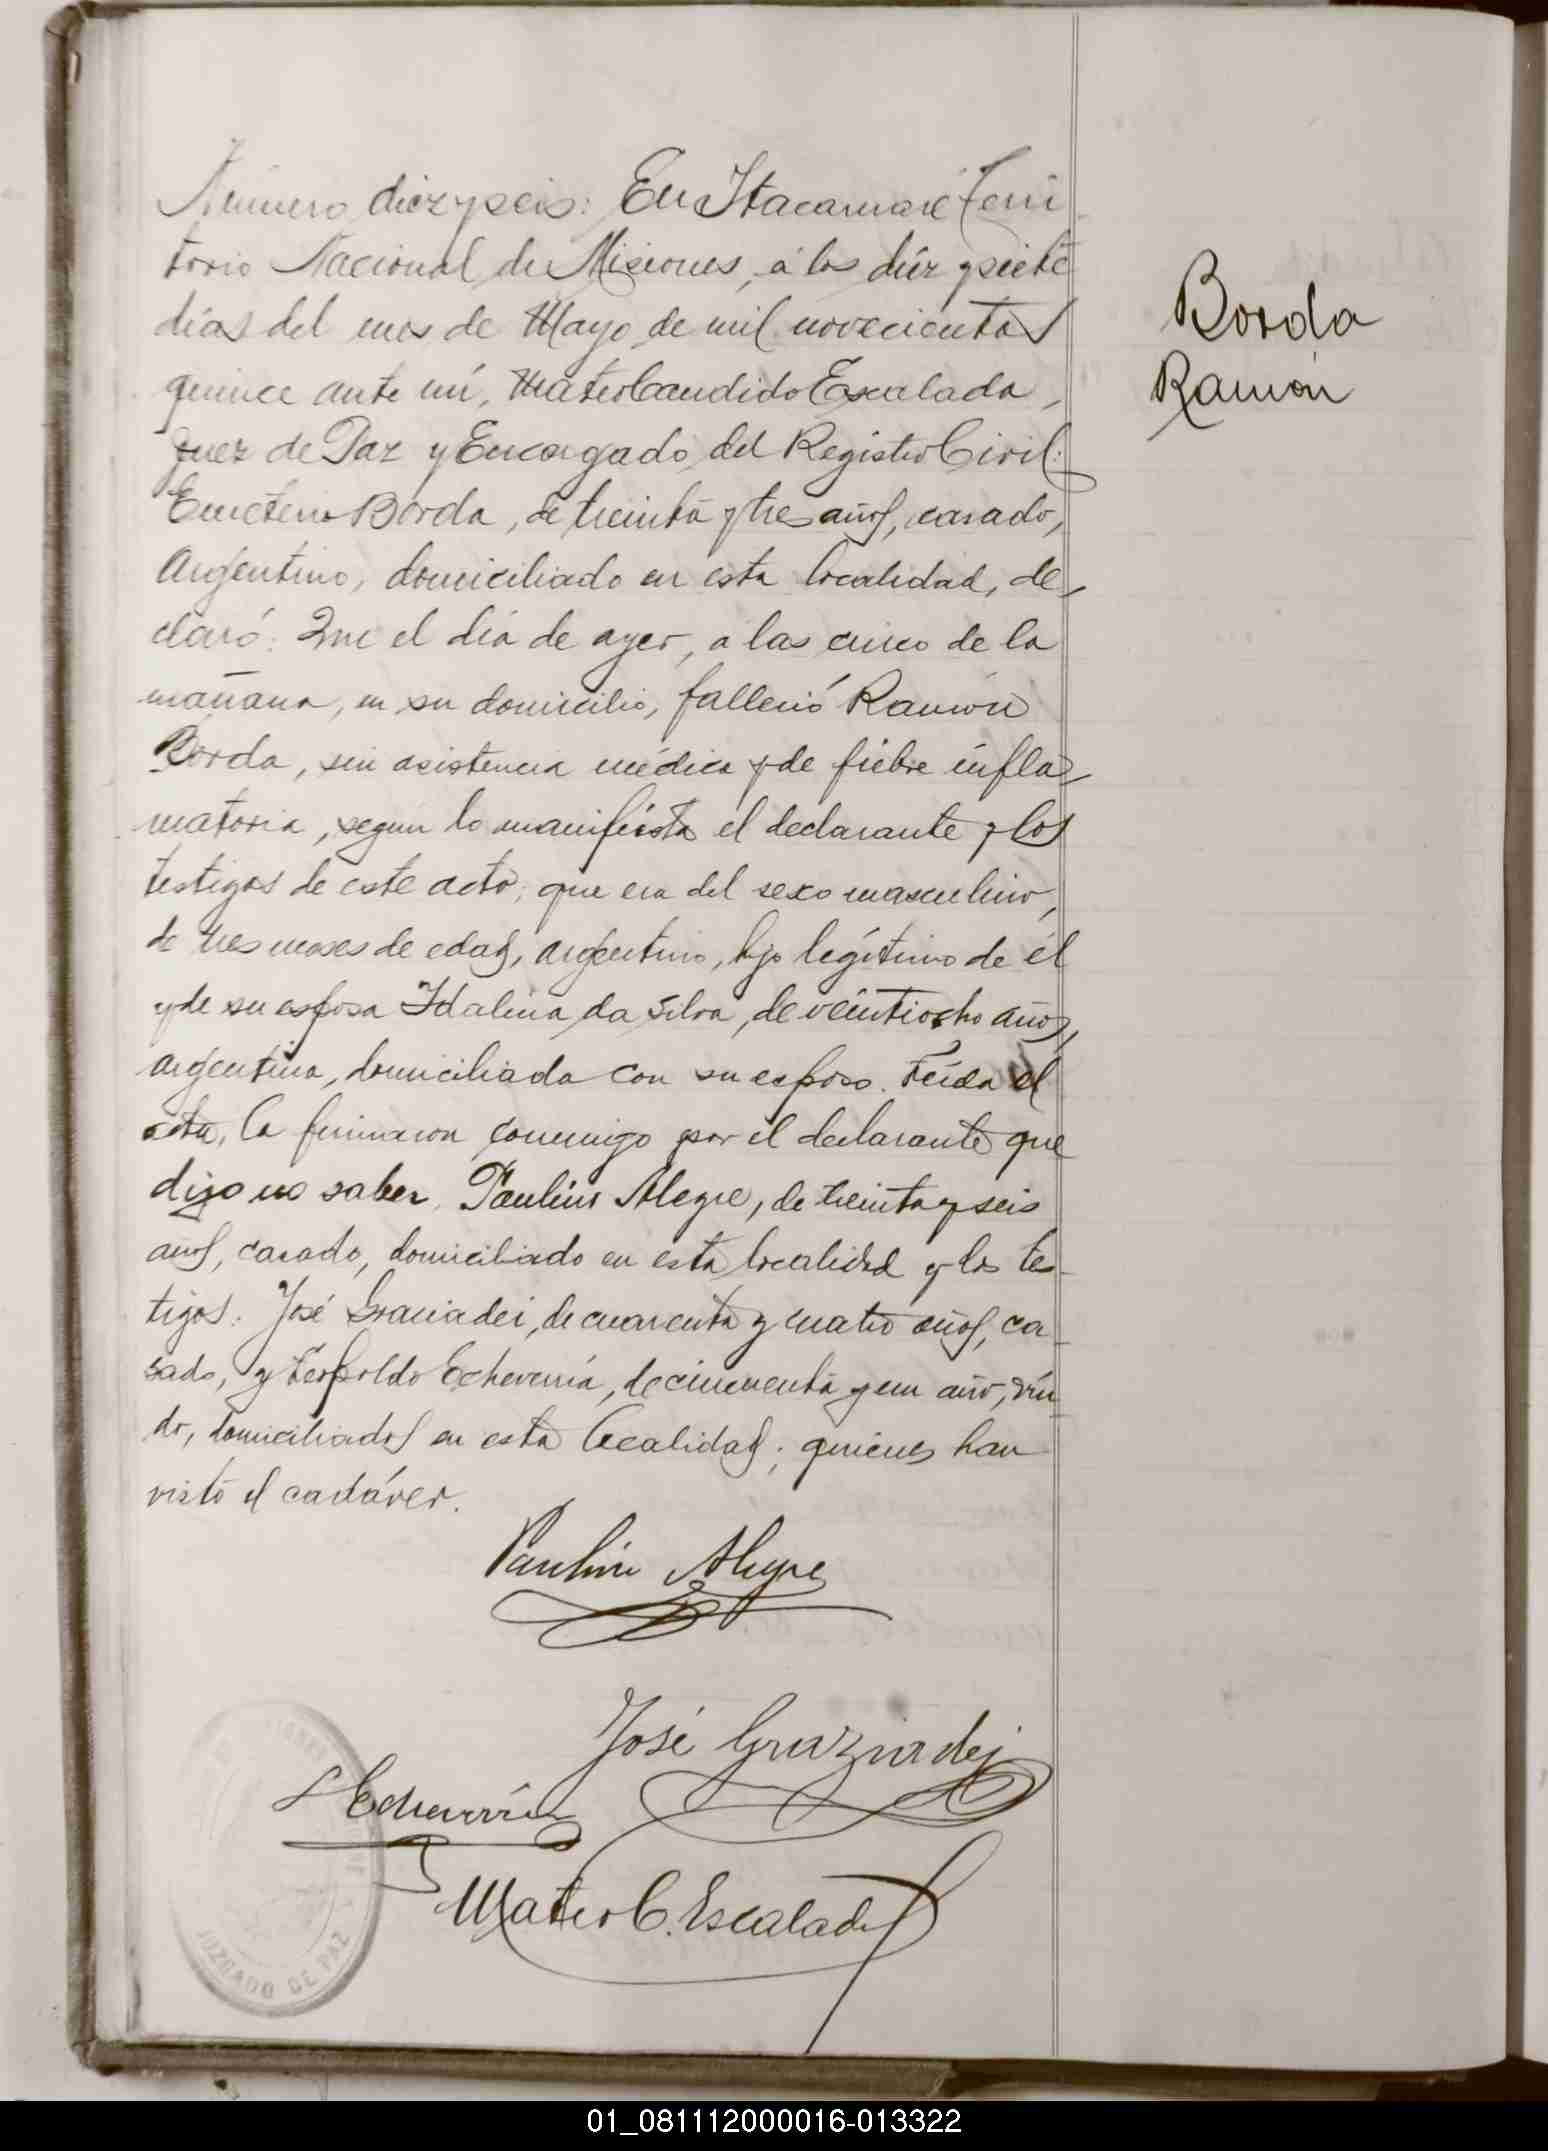 Número diez y seis: En Itacaruaré Terri
torio Nacional de Misiones, á los diez y siete
días del mes de Mayo de mil novecientos
quince ante mí, Mateo Candido Escalada,
Juez de Paz y Encargado del Registro Civil:
Emeterio Borda, de treinta y tres años, casado,
Argentino, domiciliado en esta localidad, de-
claró: Que el día de ayer, a las cinco de la
mañana, en su domicilio, falleció Ramón
Borda, sin asistencia médica y de fiebre infla-
matoria, según lo manifiesta el declarante y los
testigos de este acto; que era del sexo masculino,
de tres meses de edad, argentino, hijo legítimo de él
y de su esposa Idalina da Silva, de veintiocho años,
argentina, domiciliada con su esposo. Leída el
acta, la firmaron conmigo por el declarante que
dijo no saber, Paulino Alegre, de treinta y seis
años, casado, domiciliado en esta localidad y los tes-
tigos: José Graciadei, de cuarenta y cuatro años, ca-
sado, y Leopoldo Echeverría, de cincuenta y un año, viu-
do, domiciliados en esta localidad; quienes han
visto el cadáver.
Paulino Alegre
José Graziadei
L Echeverría
Mateo C. Escalada
JUZGADO DE PAZ
Borda
Ramón
01_081112000016-013322